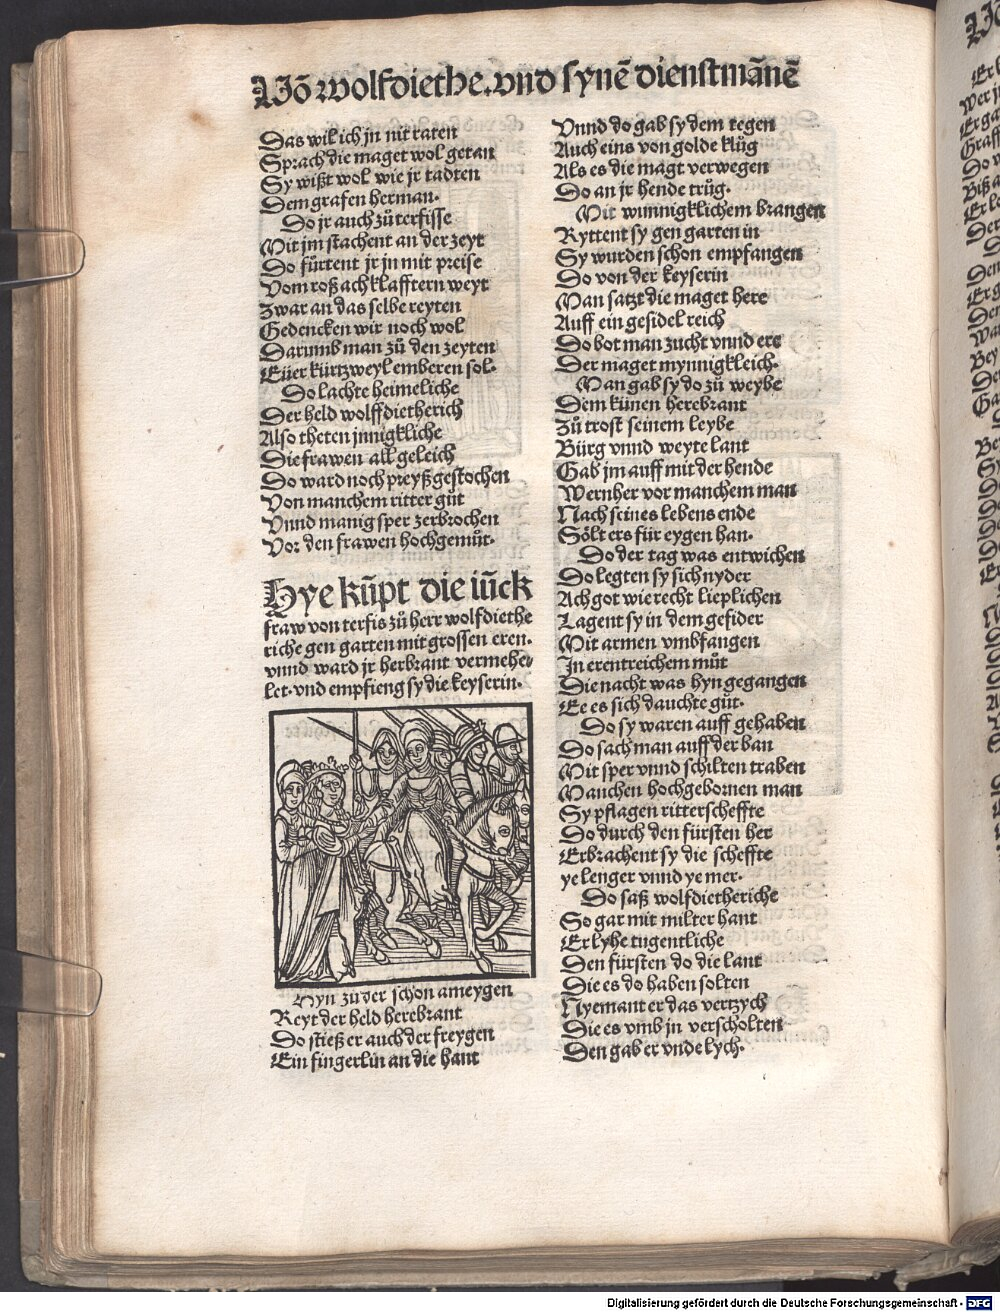 Vō wolfdiethe. vnd synē dienstmāne
Das wil ich jn nit raten
Sprach die maget wol getan
Sy wißt wol wie jr tadten
Dem grafen herman.
Do jr auch zů terfisse
Mit jm stachent an der zeyt
Do fůrtent jr jn mit preise
Vom roß ach klafftern weyt
Zwar an das selbe reyten
Gedencken wir noch wol
Darumb man zů den zeyten
Eüer kürtzweyl emberen sol.
Do lachte heimeliche
Der held wolffdietherich
Also theten jnnigkliche
Die frawen all geleich
Do ward noch preyß gestochen
Von manchem ritter gůt
Vnnd manig sper zerbrochen
Vor den frawen hochgemůt.
Hye kūpt die iūck
fraw von terfis zů herr wolfdiethe
riche gen garten mit grossen eren.
vnnd ward jr herbrant vermehe-
let. vnd empfieng sy die keyserin.
Hyn zů der schön ameygen
Reyt der held herebrant
Do stieß er auch der freygen
Ein fingerlin an die hant
Vnnd do gab sy dem tegen
Auch eins von golde klůg
Als es die magt verwegen
Do an jr hende trůg.
Mit wunnigklichem brangen
Ryttent sy gen garten in
Sy wurden schon empfangen
Do von der keyserin
Man satzt die maget here
Auff ein gesidel reich
Do bot man zucht vnnd ere
Der maget mynnigkleich.
Man gab sy do zů weybe
Dem künen herebrant
Zů trost seinem leybe
Bürg vnnd weyte lant
Gab jm auff mit der hende
Wernher vor manchem man
Nach seines lebens ende
Sölt ers für eygen han.
Do der tag was entwichen
Do legten sy sich nyder
Ach got wie recht lieplichen
Lagent sy in dem gefider
Mit armen vmbfangen
In erentreichem můt
Die nacht was hyn gegangen
Ee es sich dauchte gůt.
Do sy waren auff gehaben
Do sach man auff der ban
Mit sper vnnd schilten traben
Manchen hochgebornen man
Sy pflagen ritterscheffte
Do durch den fürsten her
Erbrachent sy die scheffte
ye lenger vnnd ye mer.
Do saß wolfdietheriche
So gar mit milter hant
Er lyhe tugentliche
Den fürsten do die lant
Die es do haben solten
Nyemant er das vertzych
Die es vmb jn verscholten
Den gab er vnde lych.
Digitalisierung gefördert durch die Deutsche Forschungsgemeinschaft - DFG